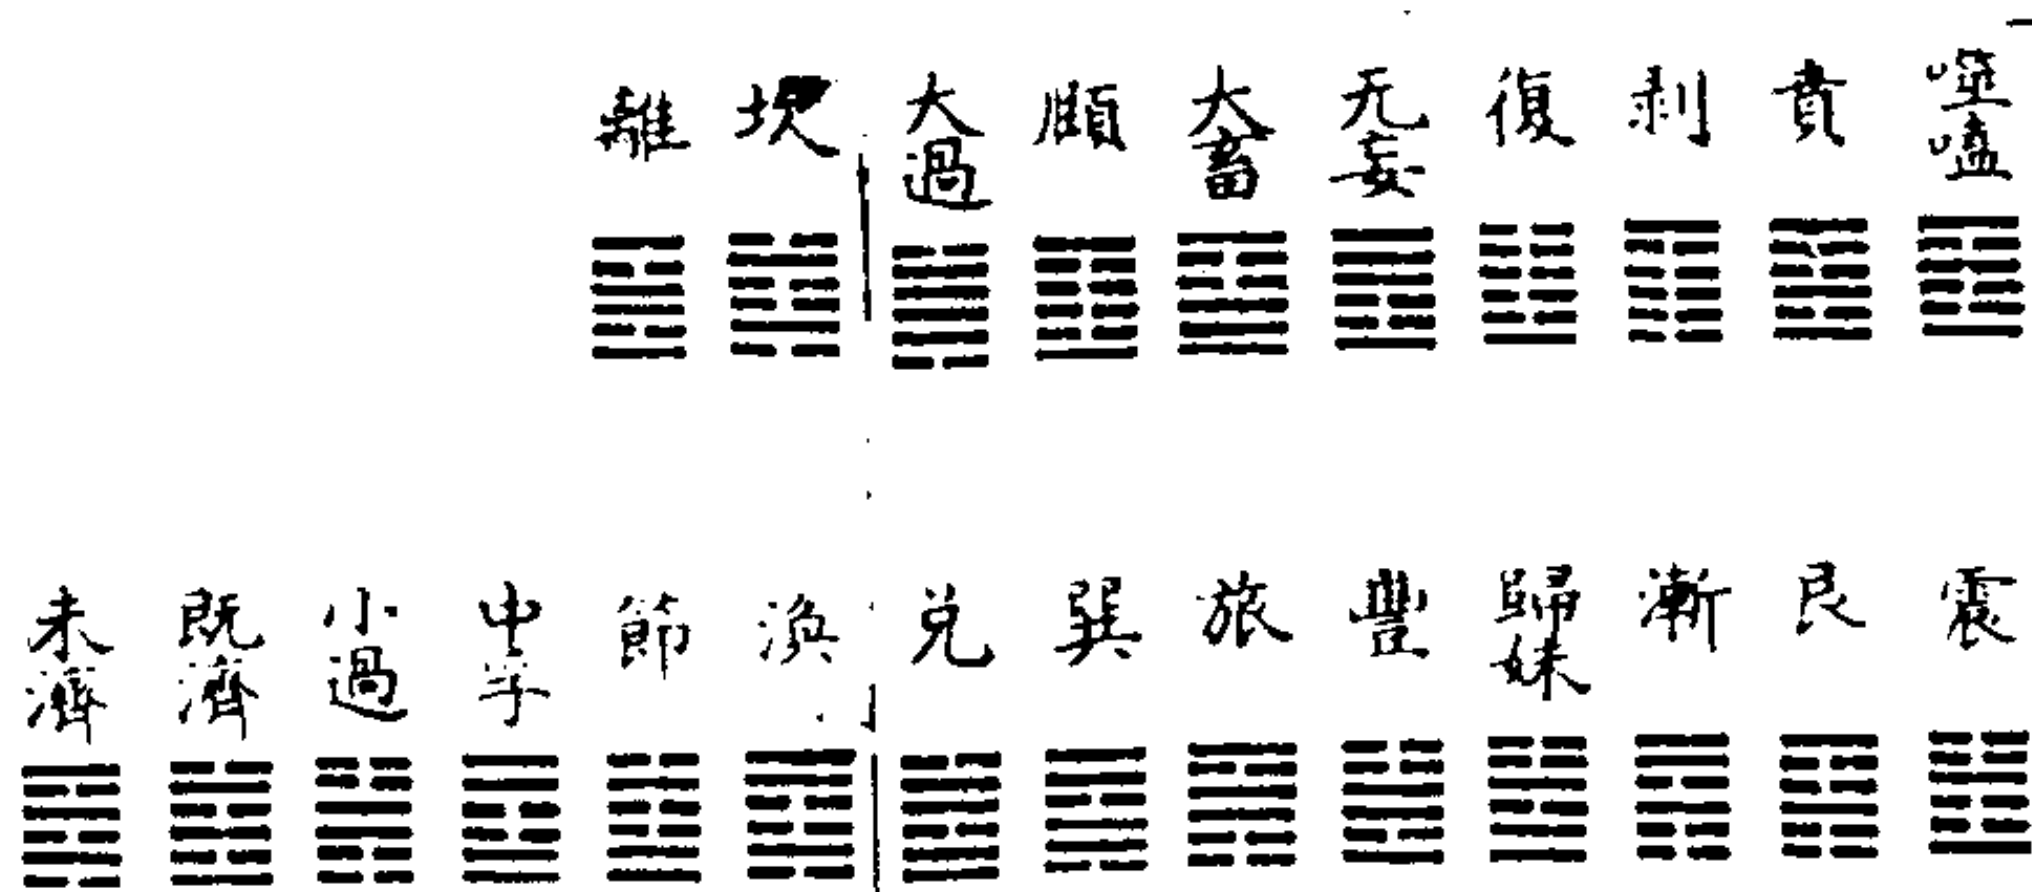 噬嗑
賁
剥
復
无妄
大畜
頤
大過
坎
離
震
艮
漸
歸妹
豐
旅
巽
兌
渙
節
中孚
小過
既濟
未濟